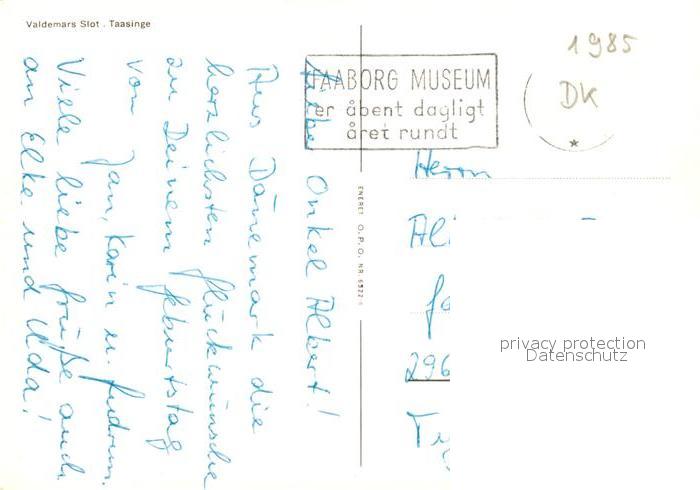 Valdemars Slot . Taasinge
1985
DK
FAABORG MUSEUM
er åbent dagligt
året rundt
Lieber Onkel Albert!
Aus Dänemark die
herzlichsten Glückwünsche
zu Deinem Geburtstag
von Jan, Karin u. Gudrun.
Viele liebe Grüße auch
an Elke und Alda!
ENERET O.P.O. NR.
Herrn
296
privacy protection
Datenschutz